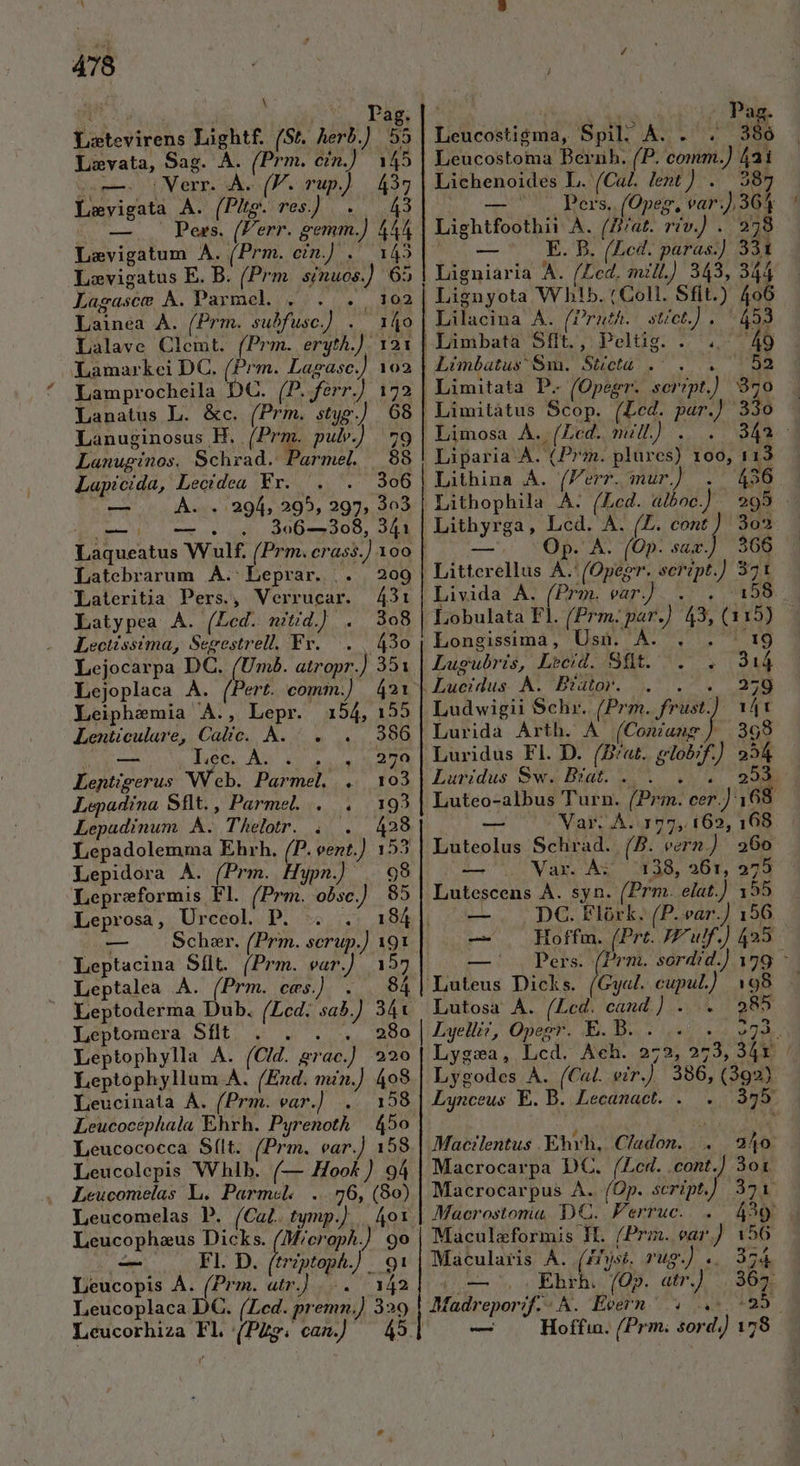 478
Pag.
Lætevirens Lightf. (St. herb.) 55
Lævata, Sag. A. (Prm. cin.) 145
— Verr. A. (V. rup.) 437
Lævigata A. (Phg. res.) . 43
— Pers. (Verr. gemm.) 444
Lævigatum A. (Prm. cin.) . 143
Lævigatus E. B. (Prm. sinuos.) 65
Lagascæ A. Parmel. . . . 102
Lainea A. (Prm. subfusc.) . 140
Lalave Clemt. (Prm. eryth.) 121
Lamarkei DC. (Prm. Lagasc.) 102
Lamprocheila DC. (P. ferr.) 172
Lanatus L. &c. (Prm. styg.) 68
Lanuginosus H. (Prm. pulv.) 79
Lanuginos. Schrad. Parmel. 88
Lapicida, Lecidea Fr. . . 306
— A. . 294, 295, 297, 303
— — . . 306—308, 341
Laqueatus Wulf. (Prm. crass.) 100
Latebrarum A. Leprar. . . 209
Lateritia Pers., Verrucar. 431
Latypea A. (Lcd. nitid.) . 308
Lectissima, Segestrell. Fr. . 430
Lejocarpa DC. (Umb. atropr.) 351
Lejoplaca A. (Pert. comm.) 421
Leiphæmia A., Lepr. 154, 155
Lenticulare, Calic. A. . . . 386
— Lec. A. . . . . 270
Lentigerus Web. Parmel. . 103
Lepadina Sflt., Parmel. . . 193
Lepadinum A. Thelotr. . . 428
Lepadolemma Ehrh. (P. vent.) 153
Lepidora A. (Prm. Hypn.) 98
Lepræformis Fl. (Prm. obsc.) 85
Leprosa, Urceol. P. . . . 184
— Schær. (Prm. scrup.) 191
Leptacina Sflt. (Prm. var.) 157
Leptalea A. (Prm. cæs.) . 84
Leptoderma Dub. (Lcd. sab.) 341
Leptomera Sflt . . . . . 280
Leptophylla A. (Cld. grac.) 220
Leptophyllum A. (End. min.) 408
Leucinata A. (Prm. var.) . 158
Leucocephala Ehrh. Pyrenoth 450
Leucococca Sflt. (Prm. var.) 158
Leucolepis Whlb. (— Hook) 94
Leucomelas L. Parmel. . 76, (80)
Leucomelas P. (Cal. tymp.) 401
Leucophæus Dicks. (Microph.) 90
— Fl. D. (triptoph.) 91
Leucopis A. (Prm. atr.) . . 142
Leucoplaca DC. (Lcd. premn.) 329
Leucorhiza Fl. (Phg. can.) 45
Pag.
Leucostigma, Spil. A. . . 386
Leucostoma Bernh. (P. comm.) 421
Lichenoides L. (Cal. lent.) . 387
— Pers. (Opeg. var.) 364
Lightfoothii A. (Biat. riv.) . 278
— E. B. (Lcd. paras.) 331
Ligniaria A. (Lcd. mill.) 343, 344
Lignyota Whlb. (Coll. Sflt.) 406
Lilacina A. (Pruth. stict.) . 453
Limbata Sflt., Peltig. . . . 49
Limbatus Sm. Sticta . . . 52
Limitata P. (Opegr. script.) 370
Limitatus Scop. (Lcd. par.) 330
Limosa A. (Lcd. mill.) . . 342
Liparia A. (Prm. plures) 100, 113
Lithina A. (Verr. mur.) . 436
Lithophila A. (Lcd. alboc.) 295
Lithyrga, Lcd. A. (L. cont) 302
— Op. A. (Op. sax.) 366
Litterellus A. (Opegr. script.) 371
Livida A. (Prm. var.) . . 158
Lobulata Fl. (Prm. par.) 43, (115)
Longissima, Usn. A. . . . 19
Lugubris, Lecid. Sflt. . . . 314
Lucidus A. Biator. . . . . 279
Ludwigii Schr. (Prm. frust.) 141
Lurida Arth. A (Coniang.) 398
Luridus Fl. D. (Biat. globif.) 254
Luridus Sw. Biat. . . . . . 253
Luteo-albus Turn. (Prm. cer.) 168
— Var. A. 177, 162, 168
Luteolus Schrad. (B. vern.) 260
— Var. A. 138, 261, 275
Lutescens A. syn. (Prm. elat.) 155
— DC. Flörk. (P. var.) 156
— Hoffm. (Prt. Wulf.) 425
— Pers. (Prm. sordid.) 179
Luteus Dicks. (Gyal. cupul.) 198
Lutosa A. (Lcd. cand) . . . 285
Lyellii, Opegr. E. B. . . . . 273
Lygæa, Lcd. Ach. 272, 273, 341
Lygodes A. (Cal. vir.) 386, (392)
Lynceus E. B. Lecanact. . . 375
Macilentus Ehrh. Cladon. . . 240
Macrocarpa DC. (Lcd. cont.) 301
Macrocarpus A. (Op. script.) 371
Macrostoma DC. Verruc. . 439
Maculæformis H. (Prm. var.) 156
Macularis A. (Hyst. rug.) . . 374
— Ehrh. (Op. atr.) 367
Madreporif. A. Evern . . . 25
— Hoffm. (Prm. sord.) 178